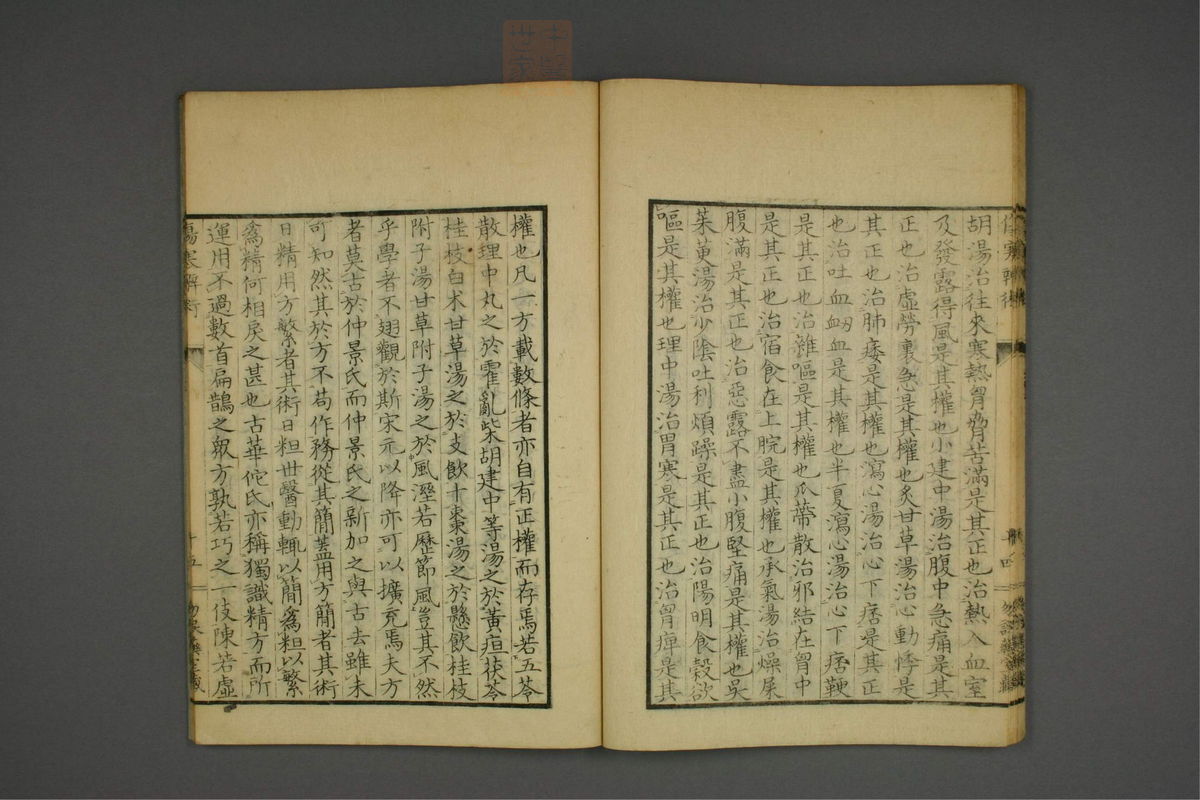 中醫世家
傷寒辨術
胡湯治往來寒熱胷脅苦滿是其正也治熱入血室
及發露得風是其權也小建中湯治腹中急痛是其
正也治虛勞裏急是其權也炙甘草湯治心動悸是
其正也治肺痿是其權也瀉心湯治心下痞是其正
也治吐血衂血是其權也半夏瀉心湯治心下痞鞕
是其正也治雜嘔是其權也瓜蔕散治邪結在胷中
是其正也治宿食在上脘是其權也承氣湯治燥屎
腹滿是其正也治惡露不盡小腹堅痛是其權也吳
茱萸湯治少陰吐利煩躁是其正也治陽明食穀欲
嘔是其權也理中湯治胃寒是其正也治胷痺是其
權也凡一方載數條者亦自有正權而存焉若五苓
散理中丸之於霍亂柴胡建中等湯之於黃疸茯苓
桂枝白术甘草湯之於支飲十棗湯之於懸飲桂枝
附子湯甘草附子湯之於風溼若歷節風豈其不然
乎學者不翅觀於斯宋元以降亦可以擴充焉夫方
者莫古於仲景氏而仲景氏之新加之與古去雖未
可知然其於方不苟作務從其簡蓋用方簡者其術
日精用方繁者其術日粗世醫動輒以簡爲粗以繁
爲精何相戾之甚也古華佗氏亦稱獨識精方而所
運用不過數首扁鵲之衆方孰若巧之一伎陳若虛
傷寒辨術
十五